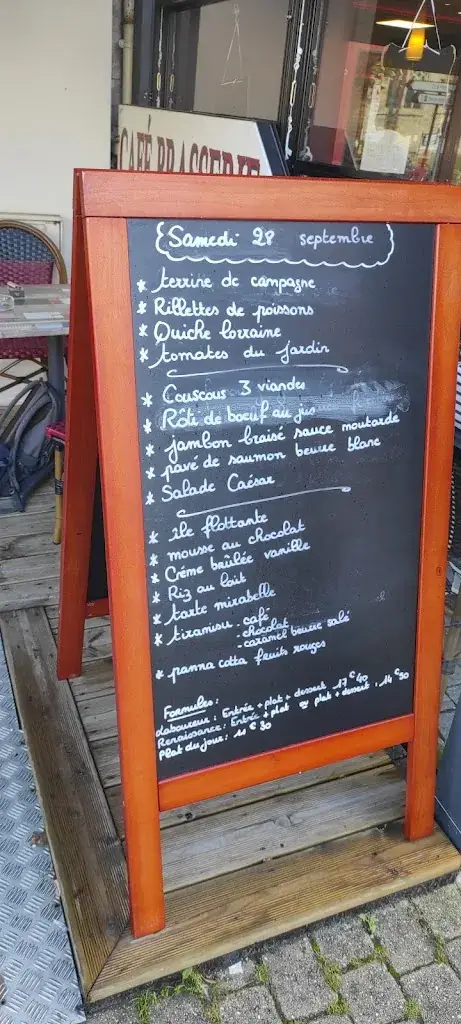 CAFÉ BRASSERIE
Samedi 28 septembre
* terrine de campagne
* Rillettes de poissons
* Quiche lorraine
* tomates du jardin
* Couscous 3 viandes
* Rôti de boeuf au jus
* jambon braisé sauce moutarde
* pavé de saumon beurre blanc
* Salade Caésar
* île flottante
* mousse au chocolat
* Crème brûlée vanille
* Riz au lait
* tarte mirabelle
* tiramisu . café
- chocolat
- caramel beurre salé
* panna cotta fruits rouges
Formules :
Laboureur : Entrée + plat + dessert 17€40
Renaissance : Entrée + plat ou plat + dessert : 14€30
Plat du jour : 11€30